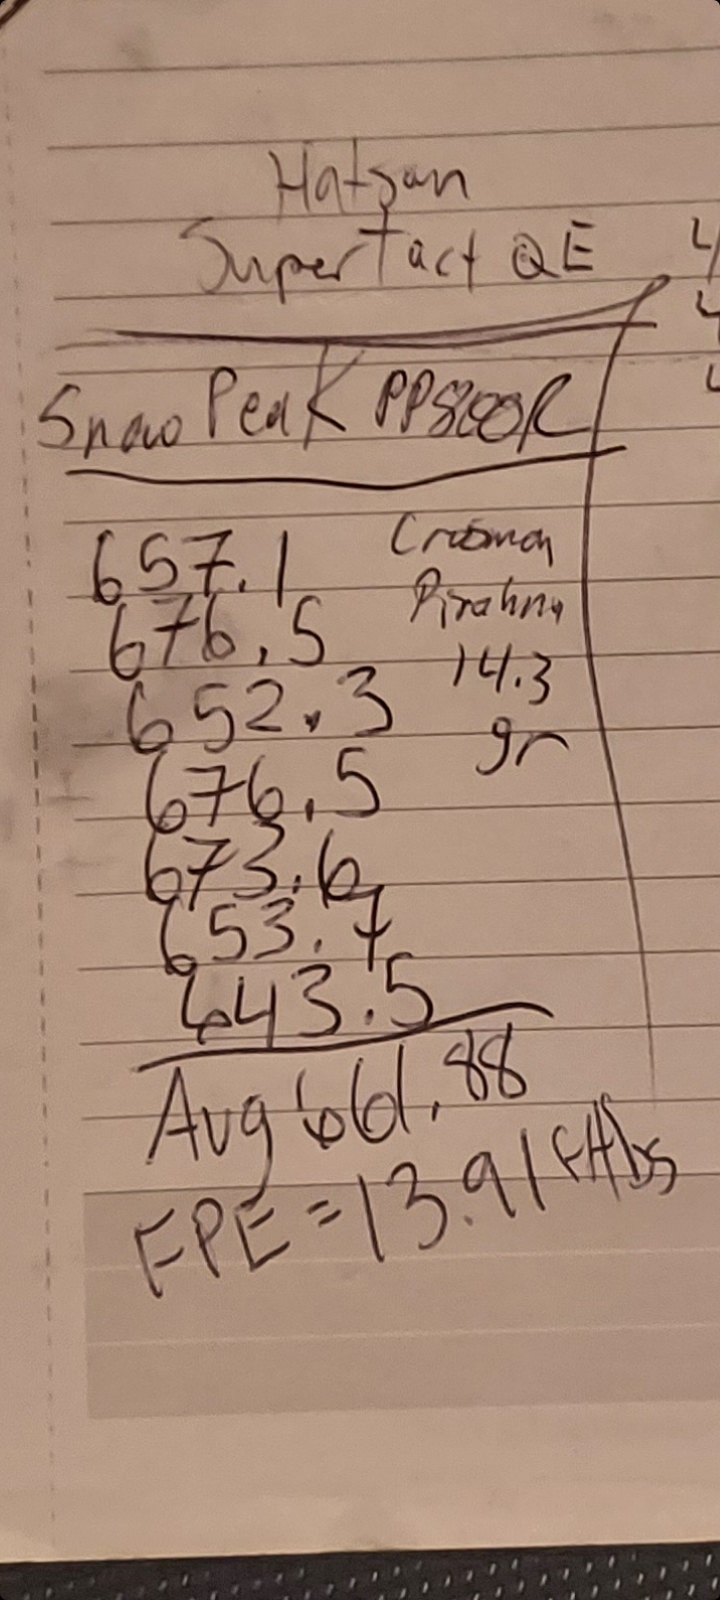 Hatsan
SuperTact QE
Snow Peak PP800R
657.1
Crosman
676.5
Pirahna
652.3
14.3
gr
676.5
673.6
653.7
643.5
Avg 661.88
FPE = 13.91 Ft lbs